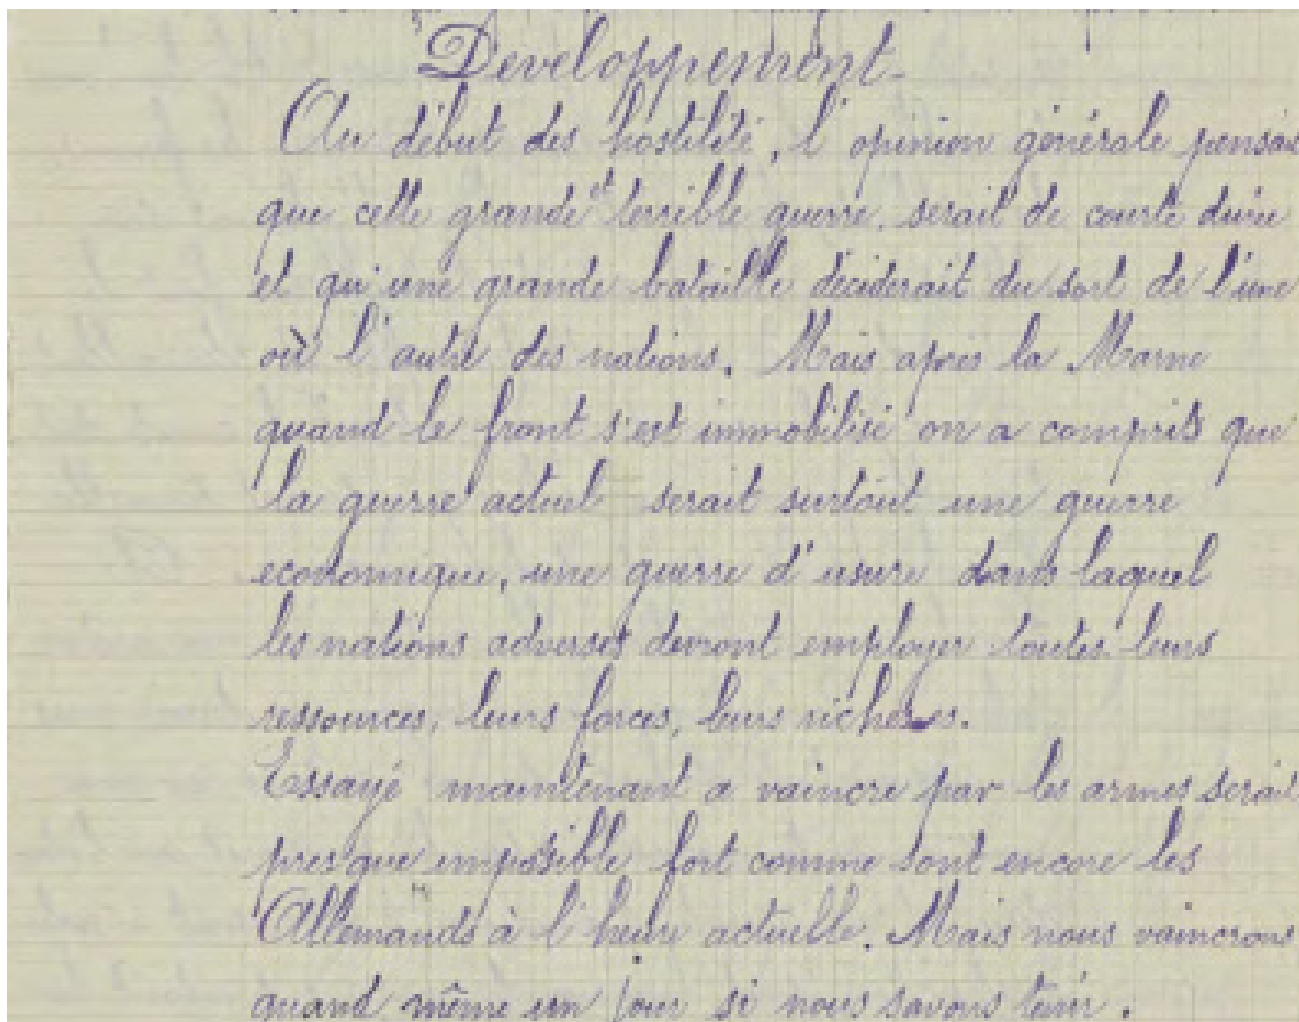 Developpement.
Au début des hostilité, l'opinion générale pensais
que cette grande et terrible guerre. serait de courte durée
et qu'une grande bataille déciderait du sort de l'une
où l'autre des nations. Mais après la Marne
quand le front s'est immobilisé on a compris que
la guerre actuel serait surtout une guerre
economique, une guerre d'usure dans laquel
les nations adverses devront employer toutes leurs
ressources, leurs forces, leurs richesses.
Essayé maintenant a vaincre par les armes serait
presque imposible fort comme sont encore les
Allemands à l'heure actuelle. Mais nous vaincrons
quand même un jour si nous savons tenir.